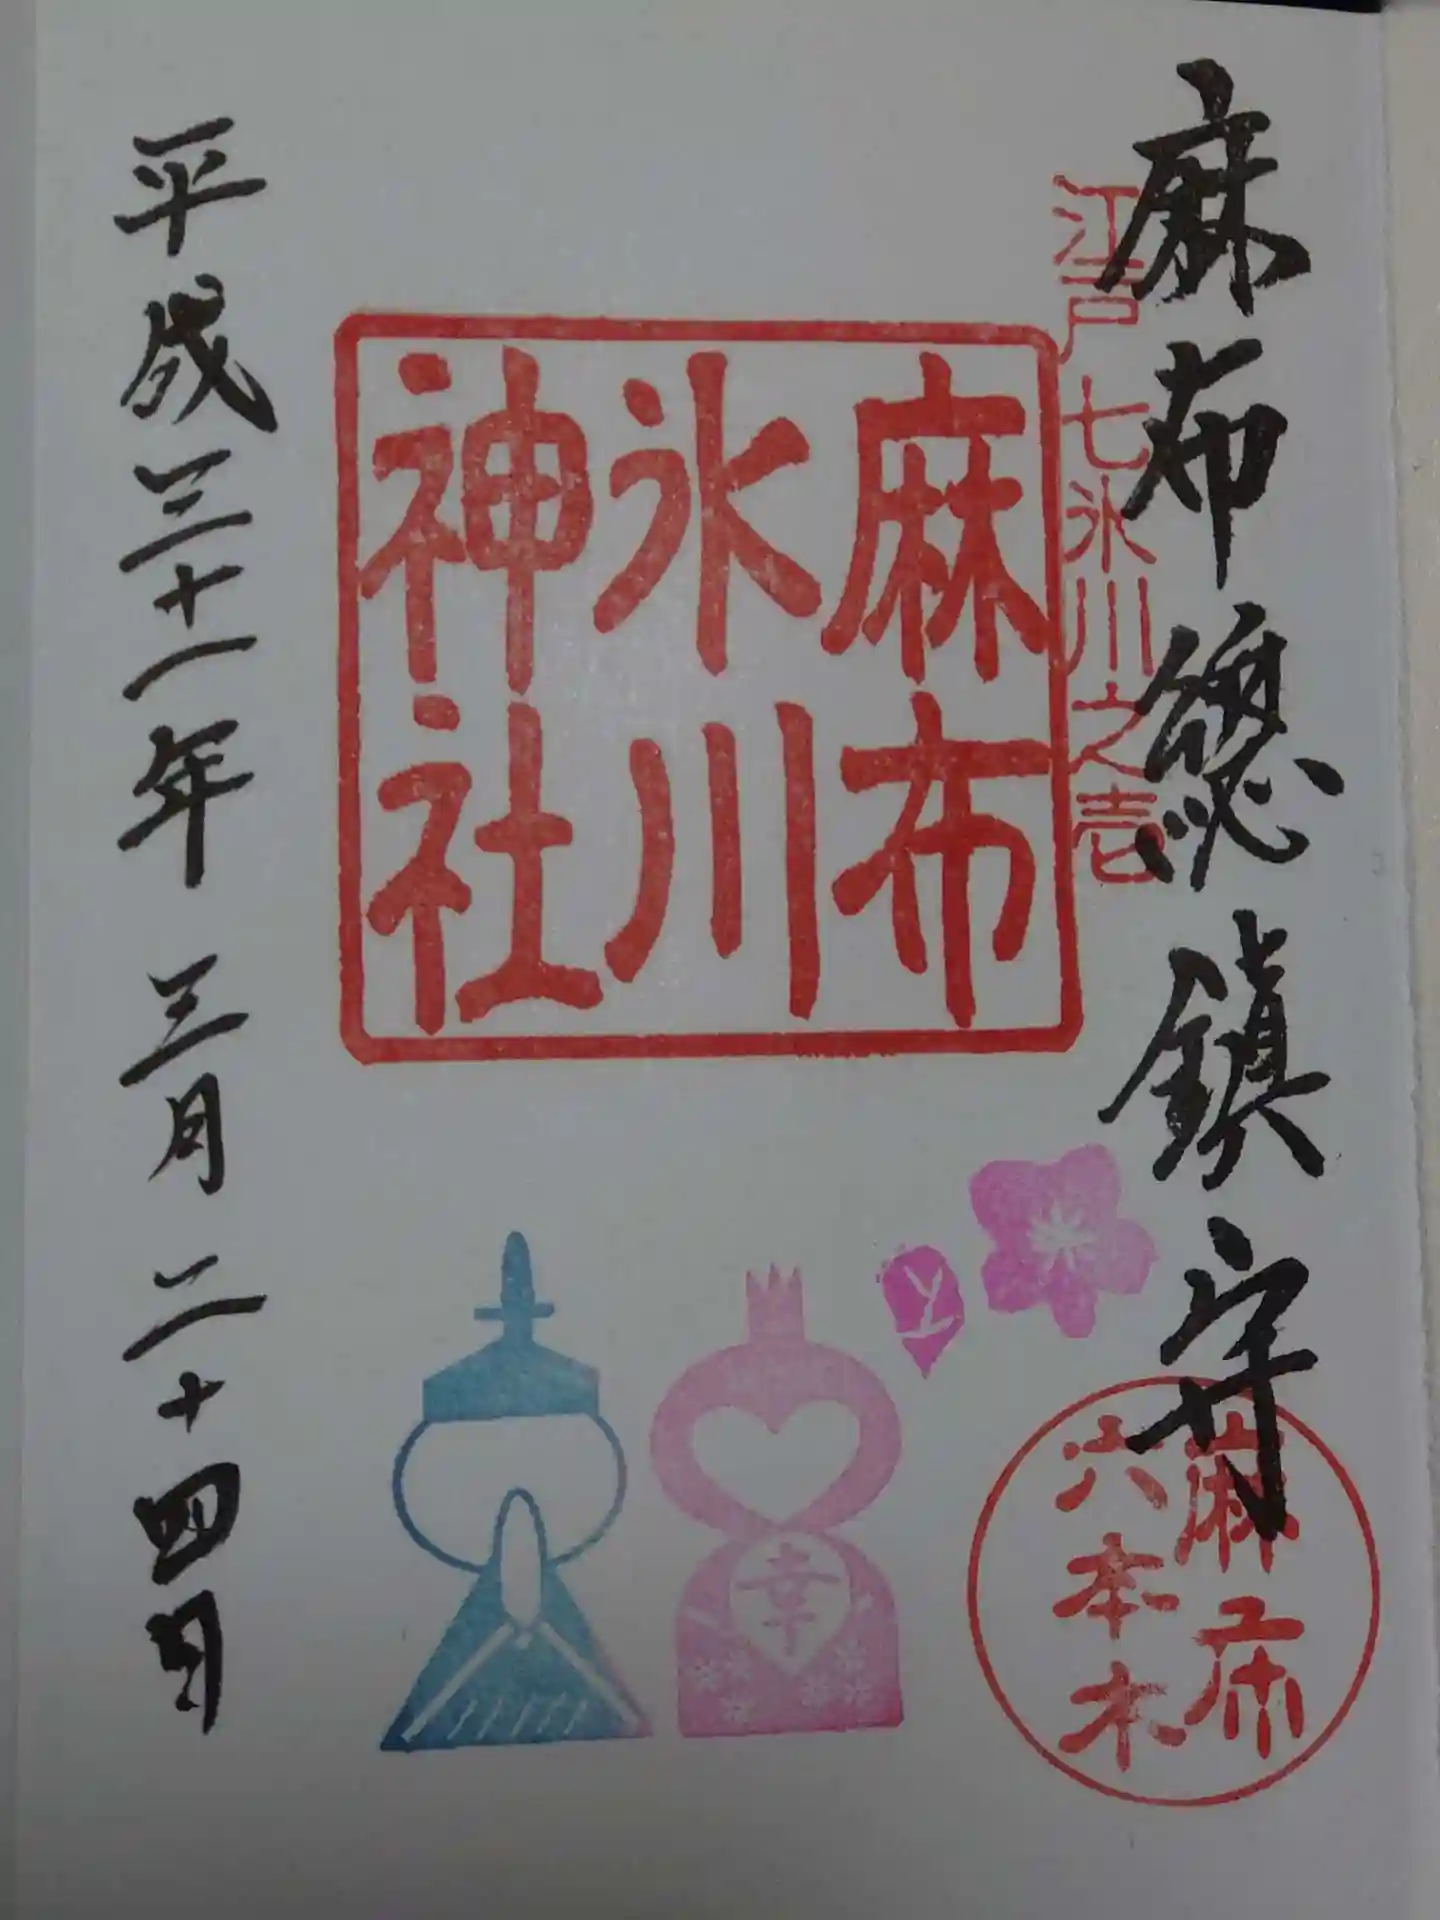 麻布總鎮守
江戸七氷川之壱
麻布
氷川
神社
幸
六本木
平成三十一年 三月二十四日